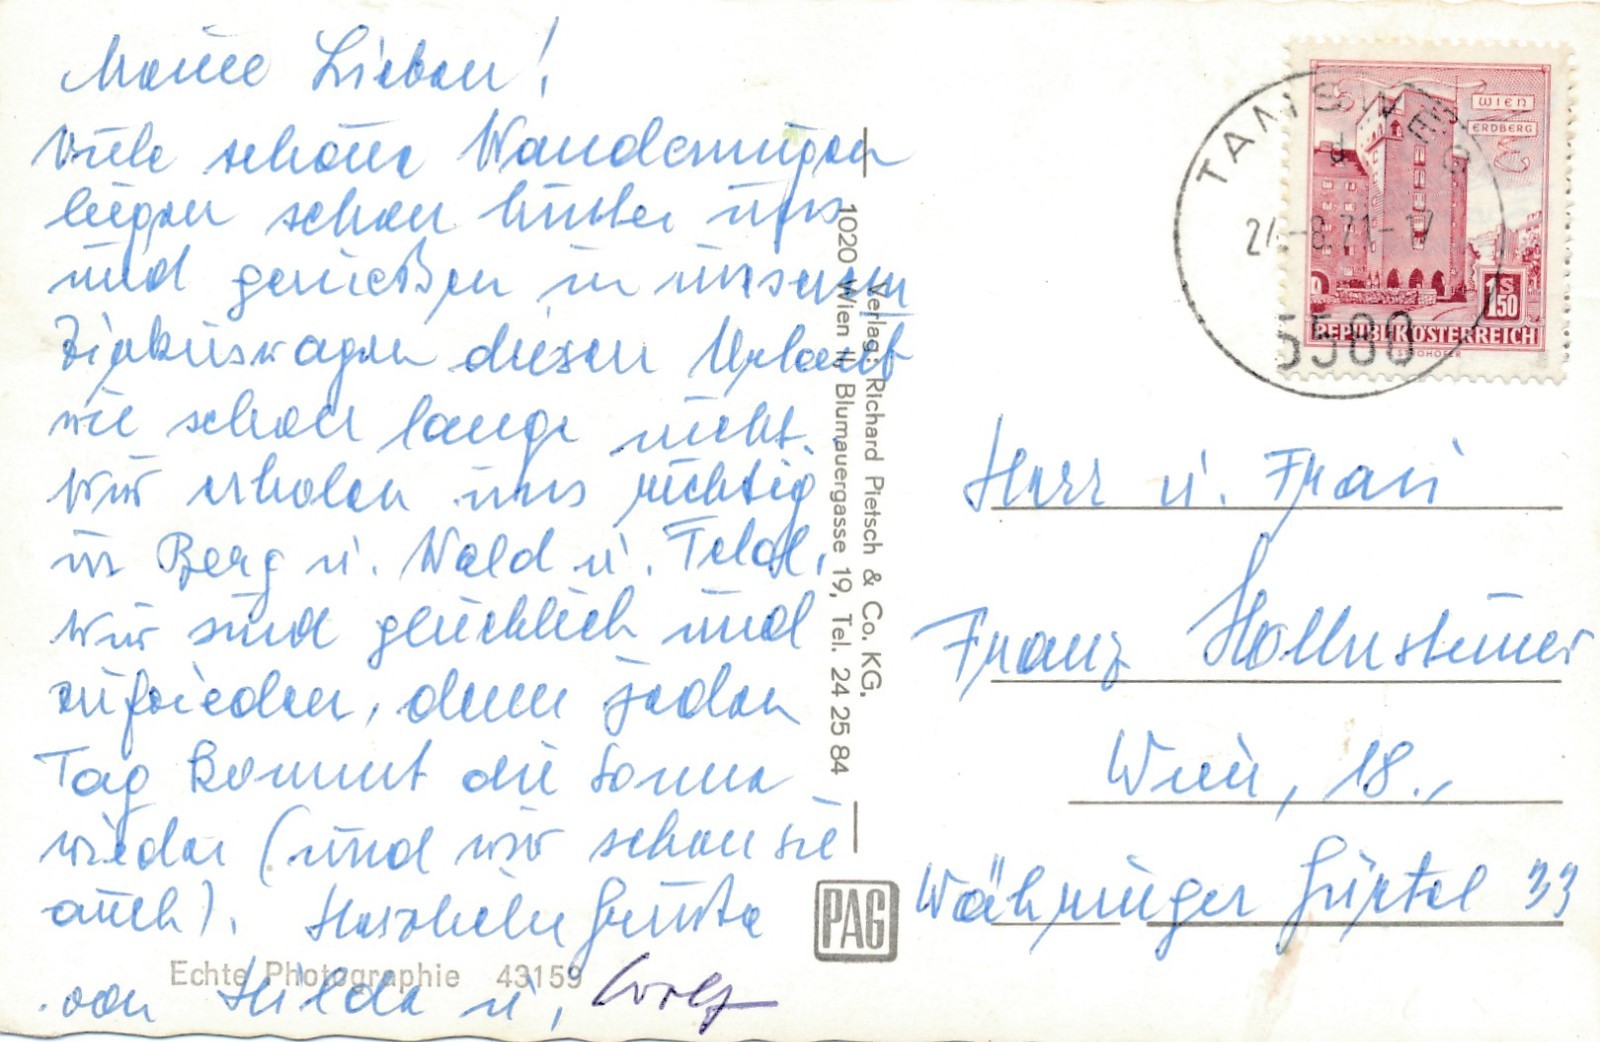 Meine Lieben!
Viele schöne Wanderungen
liegen schon hinter uns
und genießen in unserem
Zirkuswagen diesen Urlaub
wie schon lange nicht.
Wir erholen uns richtig
in Berg u. Wald u. Feld,
wir sind glücklich und
zufrieden, denn jeden
Tag kommt die Sonne
wieder (und wir sehen sie
auch). Herzliche Grüße
von Hilda u. Wolf
Echte Photographie 43159
Verlag: Richard Pietsch & Co. KG,
1020 Wien II, Blumauergasse 19, Tel. 24 25 84
PAG
TAMSWEG
71-17
5580
WIEN
ERDBERG
1S50
REPUBLIK ÖSTERREICH
Herr u. Frau
Franz Hollnsteiner
Wien, 18.,
Währinger Gürtel 33